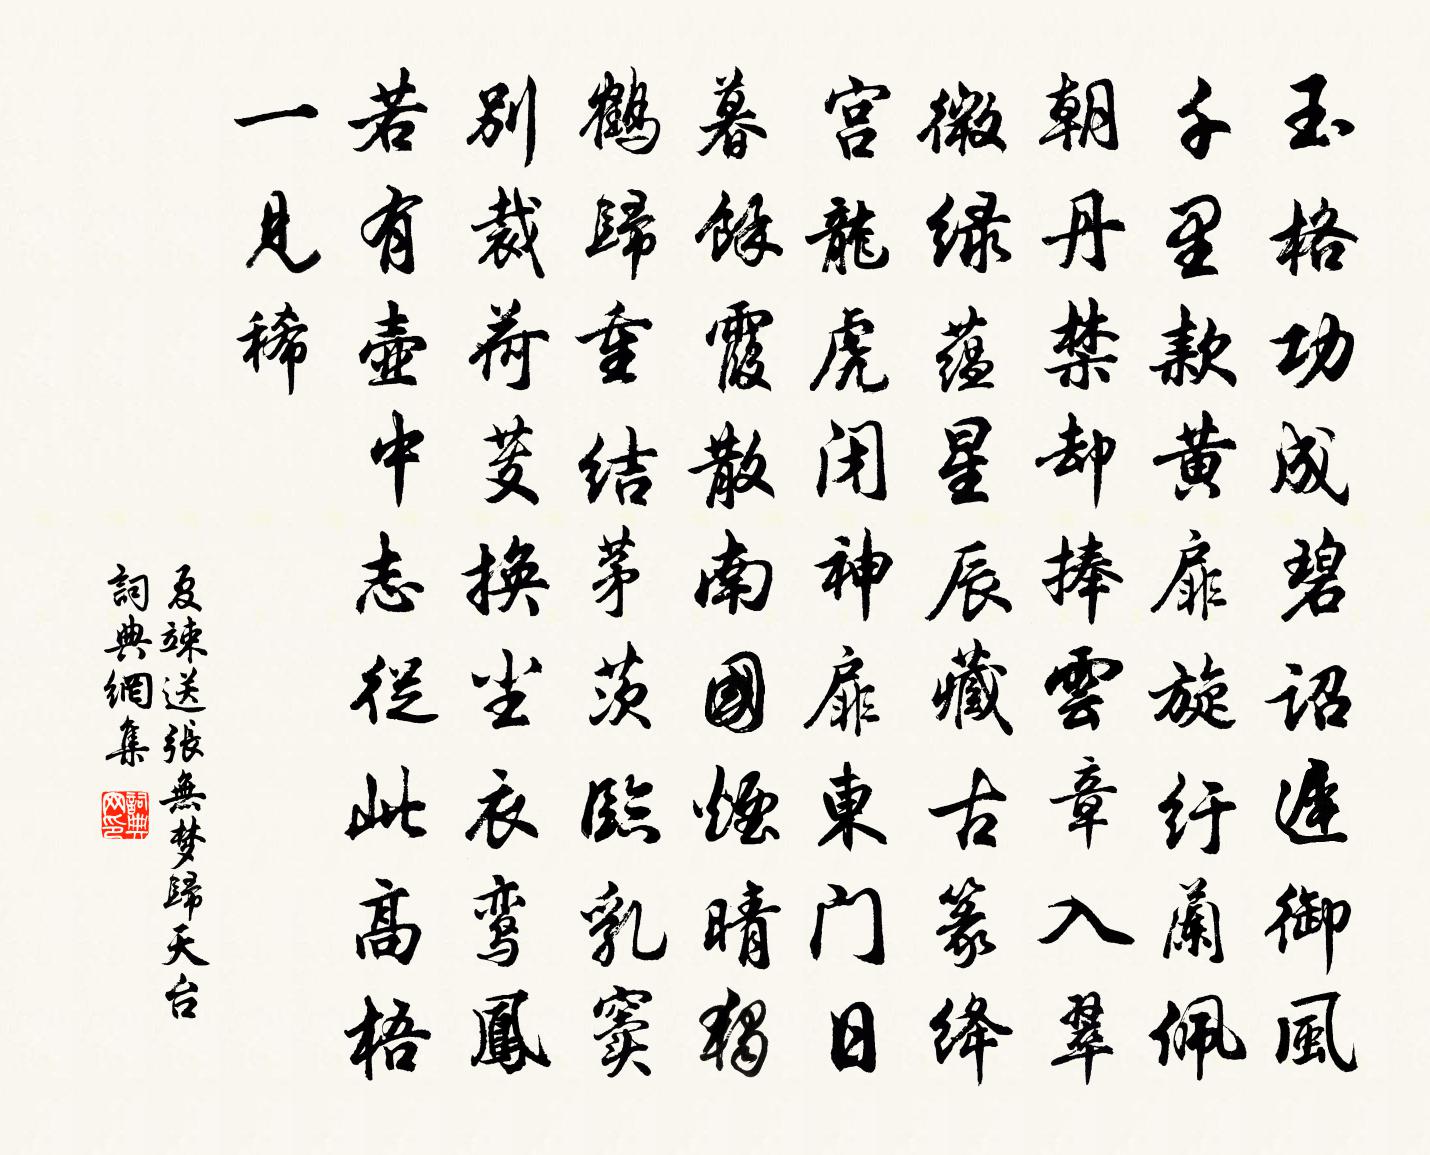 玉格功成碧诏遲御風
千里款黄扉旋纡蘭佩
朝丹禁却捧雲章入翠
微绿蕴星辰藏古篆绛
宫龍虎闭神扉東门日
暮餘霞散南國煙晴獨
鶴歸重结茅茨臨乳窦
别裁荷芰换坐衣鸾鳳
若有壺中志從此高梧
一見稀
夏竦送張無梦歸天台
詞典網集
詞典网印